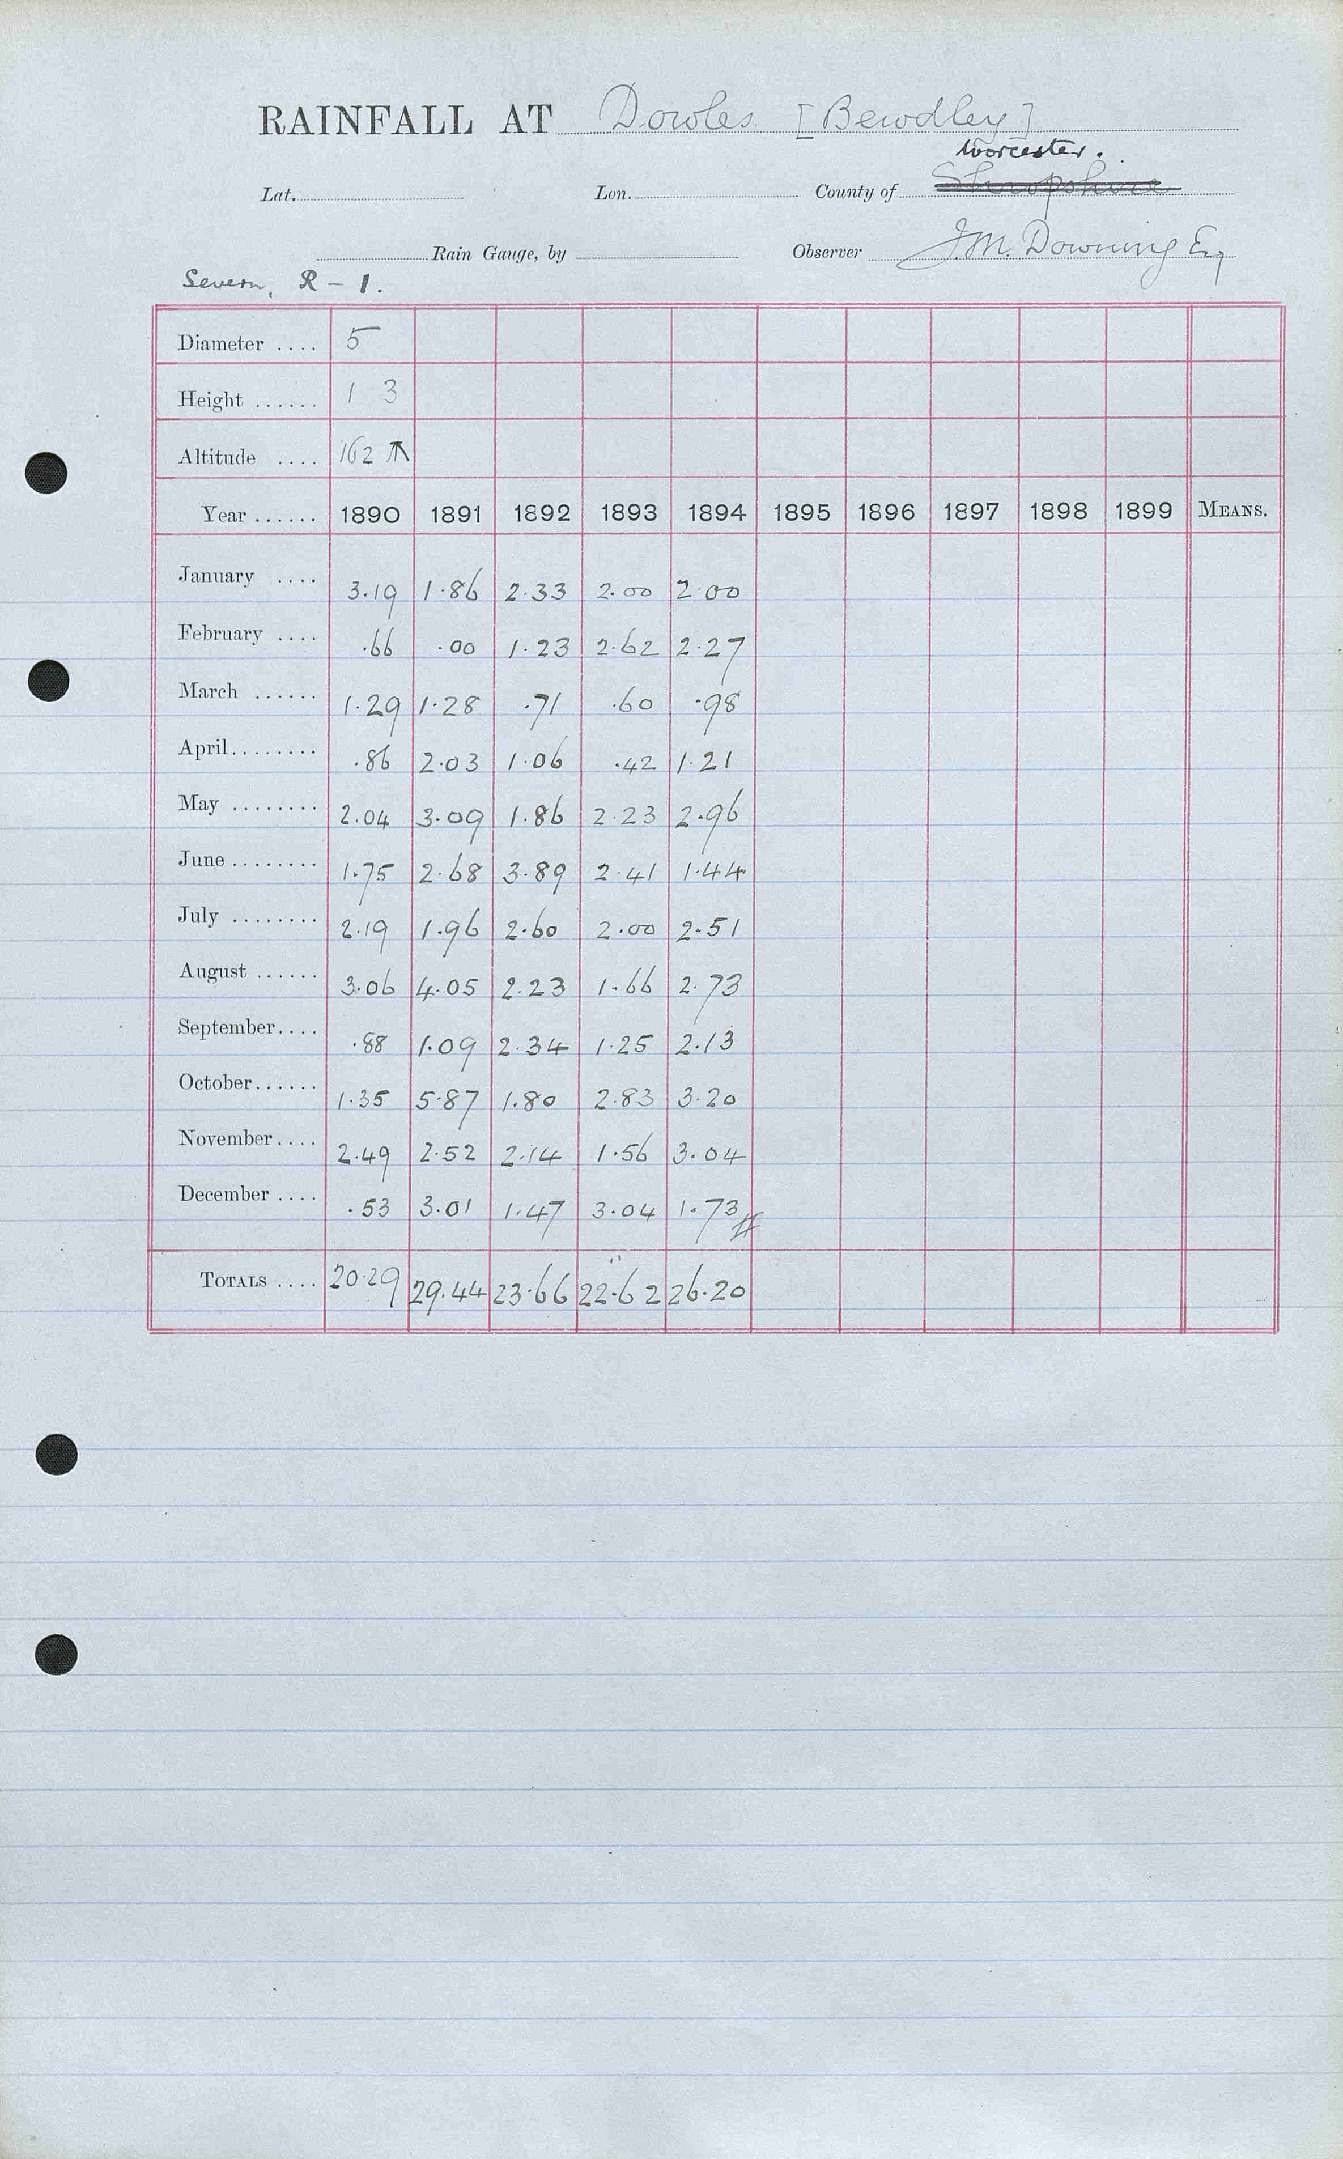 RAINFALL AT Dowles [Bewdley]
Worcester.
Lat. Lon. County of Shropshire
Rain Gauge, by Observer J.M. Downing Esq
Severn, R - 1.
Diameter .... 5
Height ...... 1 3
Altitude .... 162
Year ...... 1890 1891 1892 1893 1894 1895 1896 1897 1898 1899 MEANS.
January .... 3.19 1.86 2.33 2.00 2.00
February .... .66 .00 1.23 2.62 2.27
March ...... 1.29 1.28 .71 .60 .98
April........ .86 2.03 1.06 .42 1.21
May ........ 2.04 3.09 1.86 2.23 2.96
June ........ 1.75 2.68 3.89 2.41 1.44
July ........ 2.19 1.96 2.60 2.00 2.51
August ...... 3.06 4.05 2.23 1.66 2.73
September.... .88 1.09 2.34 1.25 2.13
October...... 1.35 5.87 1.80 2.83 3.20
November.... 2.49 2.52 2.14 1.56 3.04
December .... .53 3.01 1.47 3.04 1.73
TOTALS .... 20.29 29.44 23.66 22.62 26.20